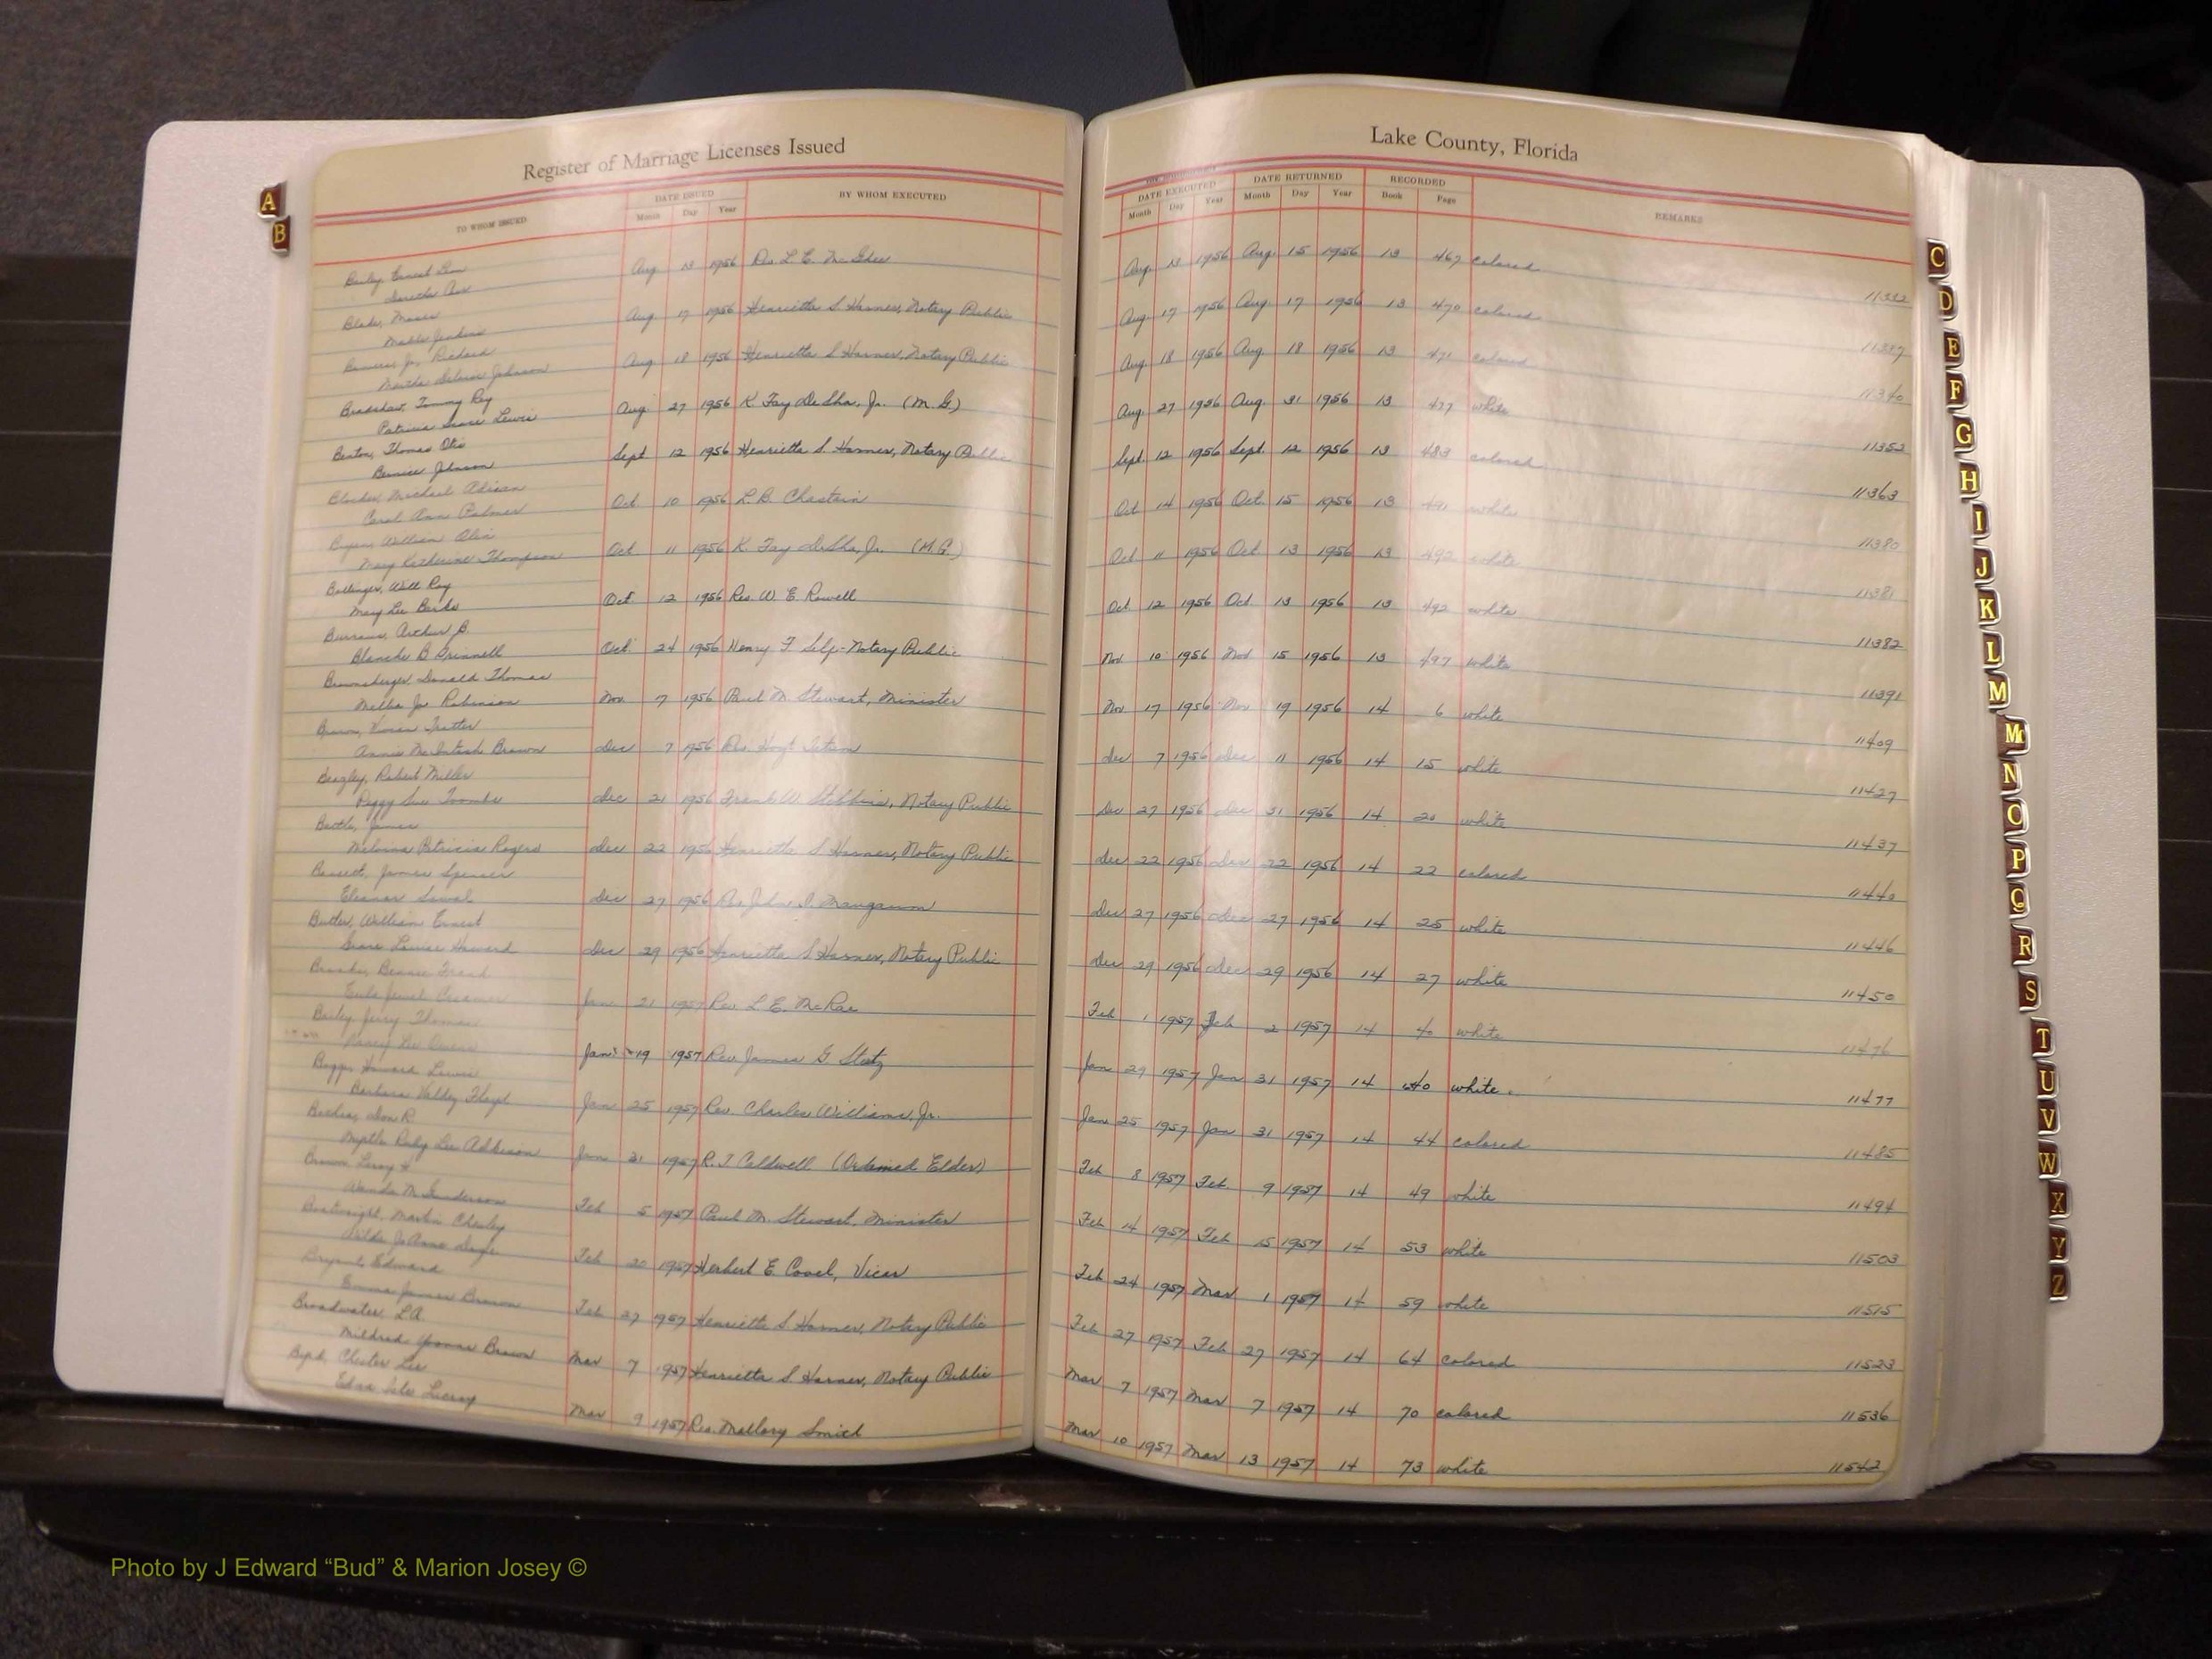 Register of Marriage Licenses Issued
Lake County, Florida
TO WHOM ISSUED
DATE ISSUED
Month Day Year
BY WHOM EXECUTED
DATE EXECUTED
Month Day Year
DATE RETURNED
Month Day Year
RECORDED
Book Page
REMARKS
Bailey, Ernest
Aug 13 1956 Rev. L. E. Aug. 13 1956 Aug. 15 1956 13 467 colored 11332
Blake, Moses
Mable Jenkins
Aug 17 1956 Henrietta S Harner, Notary Public Aug. 17 1956 Aug. 17 1956 13 470 colored 11337
Jr., Richard
Johnson
Aug 18 1956 Henrietta S Harner, Notary Public Aug. 18 1956 Aug. 18 1956 13 471 colored 11340
Bradshaw, Tommy Ray
Patricia Grace Lewis
Aug. 27 1956 K. Fay DeSha, Jr. (M.G) Aug. 27 1956 Aug. 31 1956 13 477 white 11352
Benton, Thomas Otis
Bernice Johnson
Sept 12 1956 Henrietta S. Harner, Notary Public Sept. 12 1956 Sept. 12 1956 13 483 colored 11363
Blocker, Michael Adrian
Carol Ann Palmer
Oct 10 1956 L.B. Chastain Oct 14 1956 Oct. 15 1956 13 491 white 11380
William
Mary Katherine Thompson
Oct 11 1956 K. Fay DeSha, Jr. (M.G.) Oct 11 1956 Oct 13 1956 13 492 white 11381
Bollinger, Will Roy
Mary Lee Banks
Oct. 12 1956 Rev. W E Rowell Oct. 12 1956 Oct. 13 1956 13 492 white 11382
Arthur B.
Blanche B Grinnell
Oct. 24 1956 Henry F. Self-Notary Public Nov. 10 1956 Nov 15 1956 13 497 white 11391
Brownsberger, Donald Thomas
Melba Jo Robinson
Nov. 7 1956 Paul M. Stewart, Minister Nov 17 1956 Nov 19 1956 14 6 white 11409
Brown, Vivian Trotter
Annie McIntosh Brown
Dec 7 1956 Rev. Hoyt Dec 7 1956 Dec 11 1956 14 15 white 11427
Beazley, Robert Miller
Peggy Sue Toombs
Dec 21 1956 Frank W. Stebbins, Notary Public Dec 27 1956 Dec 31 1956 14 20 white 11437
Battle, James
Patricia Rogers
Dec 22 1956 Henrietta S Harner, Notary Public Dec 22 1956 Dec 22 1956 14 22 colored 11440
James Spencer
Eleanor
Dec 27 1956 Rev. John Dec 27 1956 Dec 27 1956 14 25 white 11446
Butler, William Ernest
Grace Louise Howard
Dec 29 1956 Henrietta S Harner, Notary Public Dec 29 1956 Dec 29 1956 14 27 white 11450
Frank
Eula Jewel Creamer
Jan 21 1957 Rev L E. McRae Feb 1 1957 Feb 2 1957 14 40 white 11476
Bailey, Jerry Thomas
Nancy Lee
Jan 19 1957 Rev James G Statz Jan 29 1957 Jan 31 1957 14 40 white 11477
Boggs, Howard Lewis
Barbara Floyd
Jan 25 1957 Rev. Charles Williams, Jr. Jan 25 1957 Jan 31 1957 14 44 colored 11485
Don R.
Myrtle Ruby Lee Adkinson
Jan 31 1957 R. T Caldwell (Ordained Elder) Feb 8 1957 Feb. 9 1957 14 49 white 11494
Brown, Leroy H
Wanda M Gunderson
Feb 5 1957 Paul M. Stewart, Minister Feb 14 1957 Feb 15 1957 14 53 white 11503
Boatwright, Martin Chesley
Feb 20 1957 Herbert E Vicar Feb 24 1957 Mar 1 1957 14 59 white 11515
Bryant, Edward
Emma James Brown
Feb 27 1957 Henrietta S. Harner, Notary Public Feb 27 1957 Feb 27 1957 14 64 colored 11523
Broadwater, L.A.
Mildred Yvonne Brown
Mar 7 1957 Henrietta S Harner, Notary Public Mar 7 1957 Mar 7 1957 14 70 colored 11536
Byrd, Chester Lee
Edna
Mar 9 1957 Rev. Mallory Smith Mar 10 1957 Mar 13 1957 14 73 white 11542
A
B
C
D
E
F
G
H
I
J
K
L
M
Mc
N
O
P
Q
R
S
T
U
V
W
X
Y
Z
Photo by J Edward “Bud” & Marion Josey ©